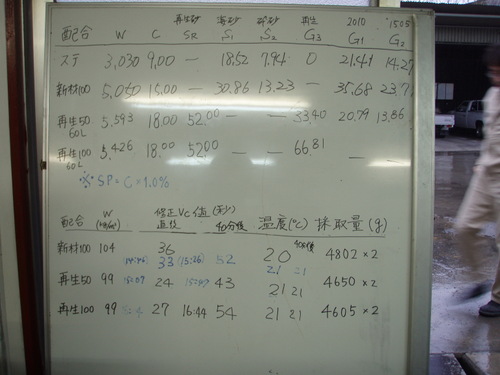 再生砂 海砂 砕砂 再生 2010 1505
配合 W C SR S1 S2 G3 G1 G2
ステ 3,030 9,00 — 18,52 7,94 0 21.41 14.27
新材100 5,050 15,00 — 30,86 13,23 — 35,68 23,7
再生50 5,593 18.00 52,00 — — 33,40 20,79 13,86
60L
再生100 5,426 18,00 52,00 — — 66,81 — —
60L
※ SP = C × 1.0%
配合 W 修正Vc値(秒) 温度(℃) 採取量(g)
(kg/m³) 直後 40分後 40分後
新材100 104 36 20 4802×2
33 (15:26) 52 21 21
再生50 99 24 43 21 21 4650×2
再生100 99 27 16:44 54 21 21 4605×2